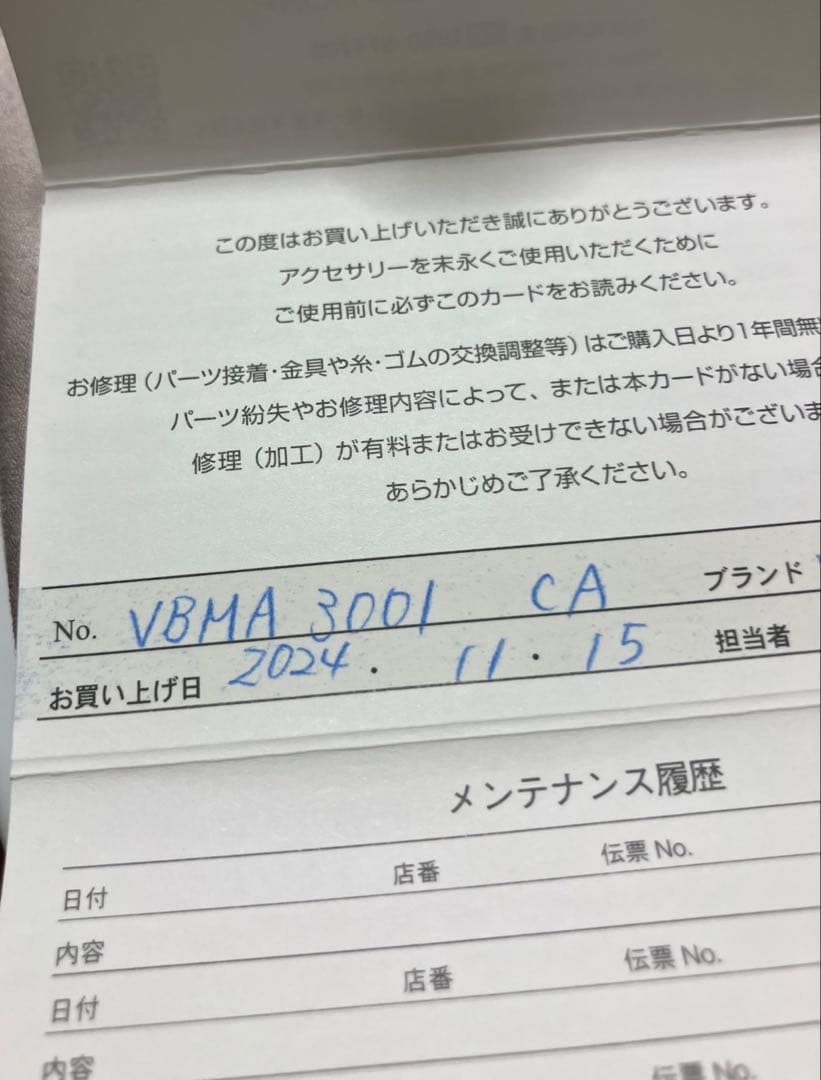 この度はお買い上げいただき誠にありがとうございます。
アクセサリーを末永くご使用いただくために
ご使用前に必ずこのカードをお読みください。
お修理(パーツ接着・金具や糸・ゴムの交換調整等)はご購入日より1年間無
パーツ紛失やお修理内容によって、または本カードがない場合
修理(加工)が有料またはお受けできない場合がございま
あらかじめご了承ください。
No. VBMA 3001 CA ブランド
お買い上げ日 2024. 11. 15 担当者
メンテナンス履歴
日付 店番 伝票 No.
内容
日付 店番 伝票 No.
内容
伝票 No.